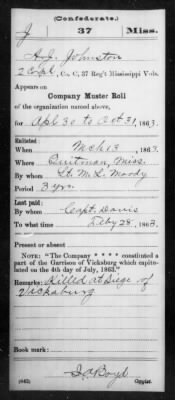 (Confederate.)
J 37 Miss.
A. J. Johnston
2 Corpl, Co. C, 37 Reg't Mississippi Vols.
Appears on
Company Muster Roll
of the organization named above,
for Apl 30 to Oct 31, 1863.
Enlisted:
When Mch 13, 1863.
Where Quitman, Miss.
By whom Lt. M. L. Moody
Period 3 yrs.
Last paid:
By whom Capt. Davis
To what time Feby 28, 1863.
Present or absent
NOTE: "The Company * * * * constituted a
part of the Garrison of Vicksburg which capitu-
lated on the 4th day of July, 1863."
Remarks: Killed at Siege of
Vicksburg
Book mark:
(642) Boyd
Copyist.